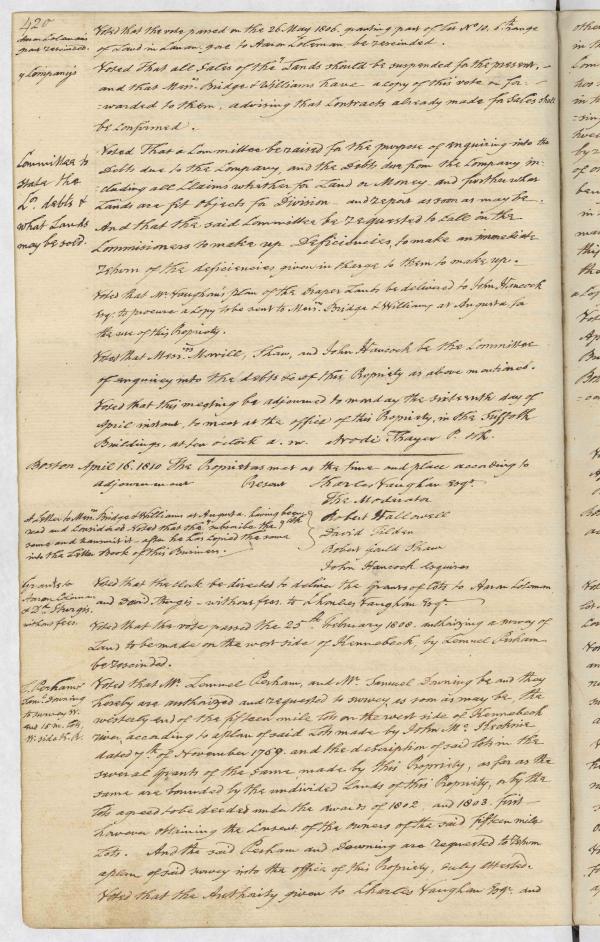 420
Aaron Coleman's
part rescinded.
Voted that the vote passed on the 26 May 1806, granting part of Lot No. 10. 6th range
of Land in gore to Aaron Coleman be rescinded.
y Company's
Voted That all Sales of the Lands should be suspended for the present,
and that Messrs. Bridge & Williams have a copy of this vote
forwarded to them, advising that Contracts already made for Sales shall
be confirmed.
Committee to
state the
Co. debts &
what Lands
may be sold.
Voted That a Committee be raised for the purpose of enquiring into the
Debts due to the Company, and the Debts due from the Company in-
cluding all Claims whether for Land or Money. and further what
Lands are fit Objects for Division and report as soon as may be.
And that the said Committee be requested to call on the
Commissioners to make up Deficiencies, to make an immediate
return of the deficiencies given in charge to them to make up.
Voted that Mr. Vaughan's plan of the Draper Lands be delivered to John Hancock
Esq. to procure a Copy to be sent to Messrs. Bridge & Williams at Augusta for
the use of this Propriety.
Voted that Messrs. Merrill, Shaw, and John Hancock be the Committee
of enquirey into the debts &c of this Propriety as above mentioned.
Voted that this meeting be adjourned to monday the sixteenth day of
April instant, to meet at the office of this Propriety, in the Suffolk
Buildings, at ten o'clock a. m. Arodi Thayer P. Clk.
Boston April 16. 1810 The Proprietors met at the time and place according to
adjournment Present Charles Vaughan Esqr.
The Moderator
Robert Hallowell
David Tilden
Robert Gould Shaw
John Hancock Esquires
A Letter to Messrs. Bridge & Williams at Augusta having been
read and Considered Voted that the Clerk subscribe the
same and transmit it after he has Copied the same
into the Letter Book of this Business.
Grants to
Aaron Coleman
& Dd. Sturgis.
without fees.
Voted that the clerk be directed to deliver the Grants of Lots to Aaron Coleman
and David Sturgis without fees to Charles Vaughan Esqr.
Voted that the vote passed the 25th February 1808. authorizing a survey of
Land to be made on the west side of Kennebeck, by Lemuel Perham
be rescinded.
L. Perham &
Saml. Downing
to survey W.
end 15 m. Lots,
W. side K. R.
Voted that Mr. Lemuel Perham, and Mr. Samuel Downing be and they
hereby are authorized and requested to survey as soon as may be, the
westerly end of the fifteen mile Lots on the west side of Kennebeck
river, according to a plan of said Lots made by John Mc. Kechnie
dated 7th of November 1769. and the description of said Lots in the
several Grants of the same made by this Propriety, as far as the
same are bounded by the undivided Lands of this Propriety, or by the
Lots agreed to be deeded under the awards of 1802, and 1803. first
however obtaining the Consent of the owners of the said fifteen mile
Lots. And the said Perham and Downing are requested to return
a plan of said survey into the office of this Propriety, duly attested.
Voted that the Authority given to Charles Vaughan Esqr. and